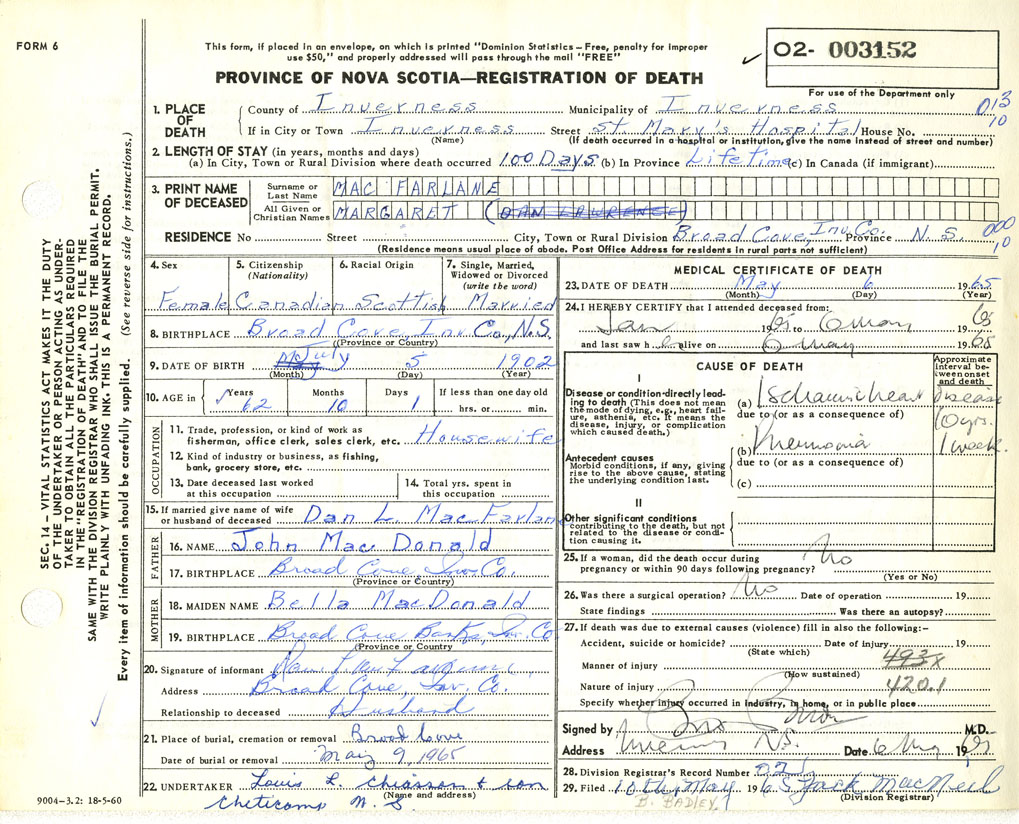 FORM 6
This form, if placed in an envelope, on which is printed "Dominion Statistics – Free, penalty for improper
use $50," and properly addressed will pass through the mail "FREE"
O2- 003152
PROVINCE OF NOVA SCOTIA—REGISTRATION OF DEATH
For use of the Department only
013
10
1. PLACE OF DEATH
County of Inverness Municipality of Inverness
If in City or Town Inverness Street St. Mary's Hospital House No.
(Name) (If death occurred in a hospital or institution, give the name instead of street and number)
2. LENGTH OF STAY (in years, months and days)
(a) In City, Town or Rural Division where death occurred 100 Days (b) In Province Life Time (c) In Canada (if immigrant)
3. PRINT NAME OF DECEASED
Surname or Last Name MAC FARLANE
All Given or Christian Names MARGARET (DAN LAWRENCE)
RESIDENCE No Street City, Town or Rural Division Broad Cove, Inv. Co. Province N.S. 000
10
(Residence means usual place of abode. Post Office Address for residents in rural parts not sufficient)
4. Sex Female
5. Citizenship (Nationality) Canadian
6. Racial Origin Scottish
7. Single, Married, Widowed or Divorced (write the word) Married
8. BIRTHPLACE Broad Cove Inv Co, N.S.
(Province or Country)
9. DATE OF BIRTH July 5 1902
(Month) (Day) (Year)
10. AGE in Years 62 Months 10 Days 1 If less than one day old hrs. or min.
OCCUPATION
11. Trade, profession, or kind of work as
fisherman, office clerk, sales clerk, etc. Housewife
12. Kind of industry or business, as fishing,
bank, grocery store, etc.
13. Date deceased last worked
at this occupation
14. Total yrs. spent in
this occupation
15. If married give name of wife
or husband of deceased Dan L. MacFarlane
FATHER
16. NAME John MacDonald
17. BIRTHPLACE Broad Cove Inv. Co.
(Province or Country)
MOTHER
18. MAIDEN NAME Bella MacDonald
19. BIRTHPLACE Broad Cove Banks, Inv. Co
(Province or Country)
20. Signature of informant
Address Broad Cove, Inv. Co.
Relationship to deceased Husband
21. Place of burial, cremation or removal Broad Cove
Date of burial or removal May 9, 1965
22. UNDERTAKER Louis L. Chiasson & son
(Name and address)
Cheticamp N.S
9004-3.2: 18-5-60
MEDICAL CERTIFICATE OF DEATH
23. DATE OF DEATH May 6 1965
(Month) (Day) (Year)
24. I HEREBY CERTIFY that I attended deceased from:
Jan 1965 to 6 May 1965
and last saw h alive on 6 May 1965
CAUSE OF DEATH
Approximate interval between onset and death
I
Disease or condition-directly leading to death (This does not mean the mode of dying, e.g., heart failure, asthenia, etc. It means the disease, injury, or complication which caused death.)
(a) Ischaemic heart Disease
due to (or as a consequence of) 10 yrs.
(b) Pneumonia 1 week.
Antecedent causes
Morbid conditions, if any, giving rise to the above cause, stating the underlying condition last.
due to (or as a consequence of)
(c)
II
Other significant conditions
contributing to the death, but not related to the disease or condition causing it.
25. If a woman, did the death occur during
pregnancy or within 90 days following pregnancy? No
(Yes or No)
26. Was there a surgical operation? No Date of operation 19
State findings Was there an autopsy?
27. If death was due to external causes (violence) fill in also the following:–
Accident, suicide or homicide? Date of injury 19
(State which)
493X
Manner of injury
(How sustained)
Nature of injury 420.1
Specify whether injury occurred in industry, in home, or in public place
Signed by M.D.
Address Inverness N.S. Date 6 May 1965
28. Division Registrar's Record Number
29. Filed 10th May 1965 Jack MacNeil
(Division Registrar)
B. BADLEY
SEC. 14 – VITAL STATISTICS ACT MAKES IT THE DUTY
OF THE UNDERTAKER OR PERSON ACTING AS UNDER-
TAKER TO OBTAIN ALL THE PARTICULARS REQUIRED
IN THE "REGISTRATION OF DEATH" AND TO FILE THE
SAME WITH THE DIVISION REGISTRAR WHO SHALL ISSUE THE BURIAL PERMIT.
WRITE PLAINLY WITH UNFADING INK. THIS IS A PERMANENT RECORD.
Every item of information should be carefully supplied. (See reverse side for instructions.)